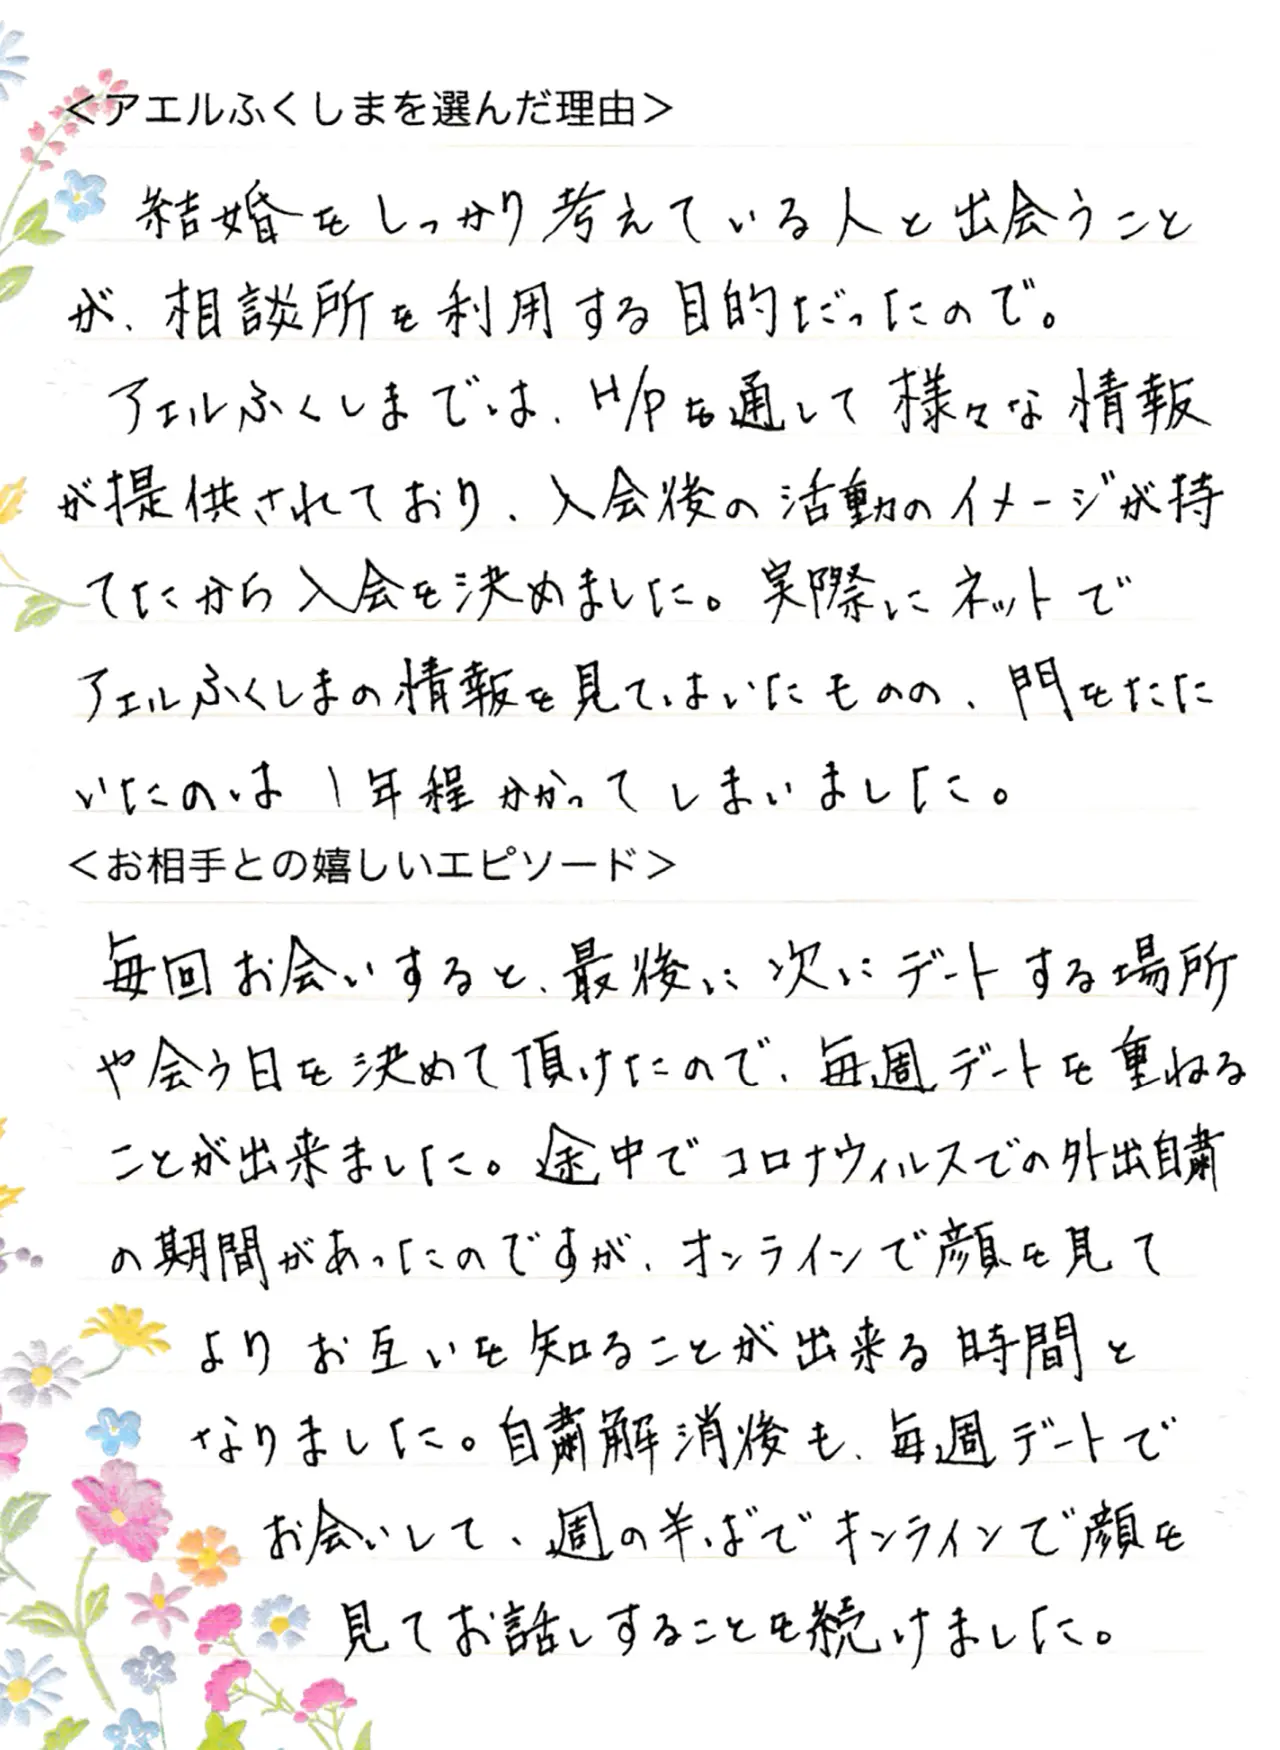 ＜アエルふくしまを選んだ理由＞
結婚をしっかり考えている人と出会うこと
が、相談所を利用する目的だったので。
アエルふくしまでは、H/Pを通して様々な情報
が提供されており、入会後の活動のイメージが持
てたから入会を決めました。実際にネットで
アエルふくしまの情報を見てはいたものの、門をたた
いたのは1年程かかってしまいました。
＜お相手との嬉しいエピソード＞
毎回お会いすると、最後に次にデートする場所
や会う日を決めて頂けたので、毎週デートを重ねる
ことが出来ました。途中でコロナウィルスでの外出自粛
の期間があったのですが、オンラインで顔を見て
よりお互いを知ることが出来る時間と
なりました。自粛解消後も、毎週デートで
お会いして、週の半ばでオンラインで顔を
見てお話しすることを続けました。